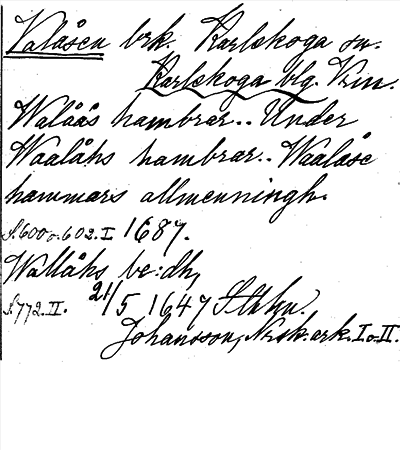 Valåsen brk. Karlskoga sn.
Karlskoga blg. Vrm.
Walåås hambrar.. Under
Waalåhs hambrar.. Waalåse
hammars allmenningh.
S. 600 o. 602. I 1687.
Wallåhs be:dh,
S. 772. II. 21/5 1647 Sthlm.
Johansson, Norsk. ark. I o. II.